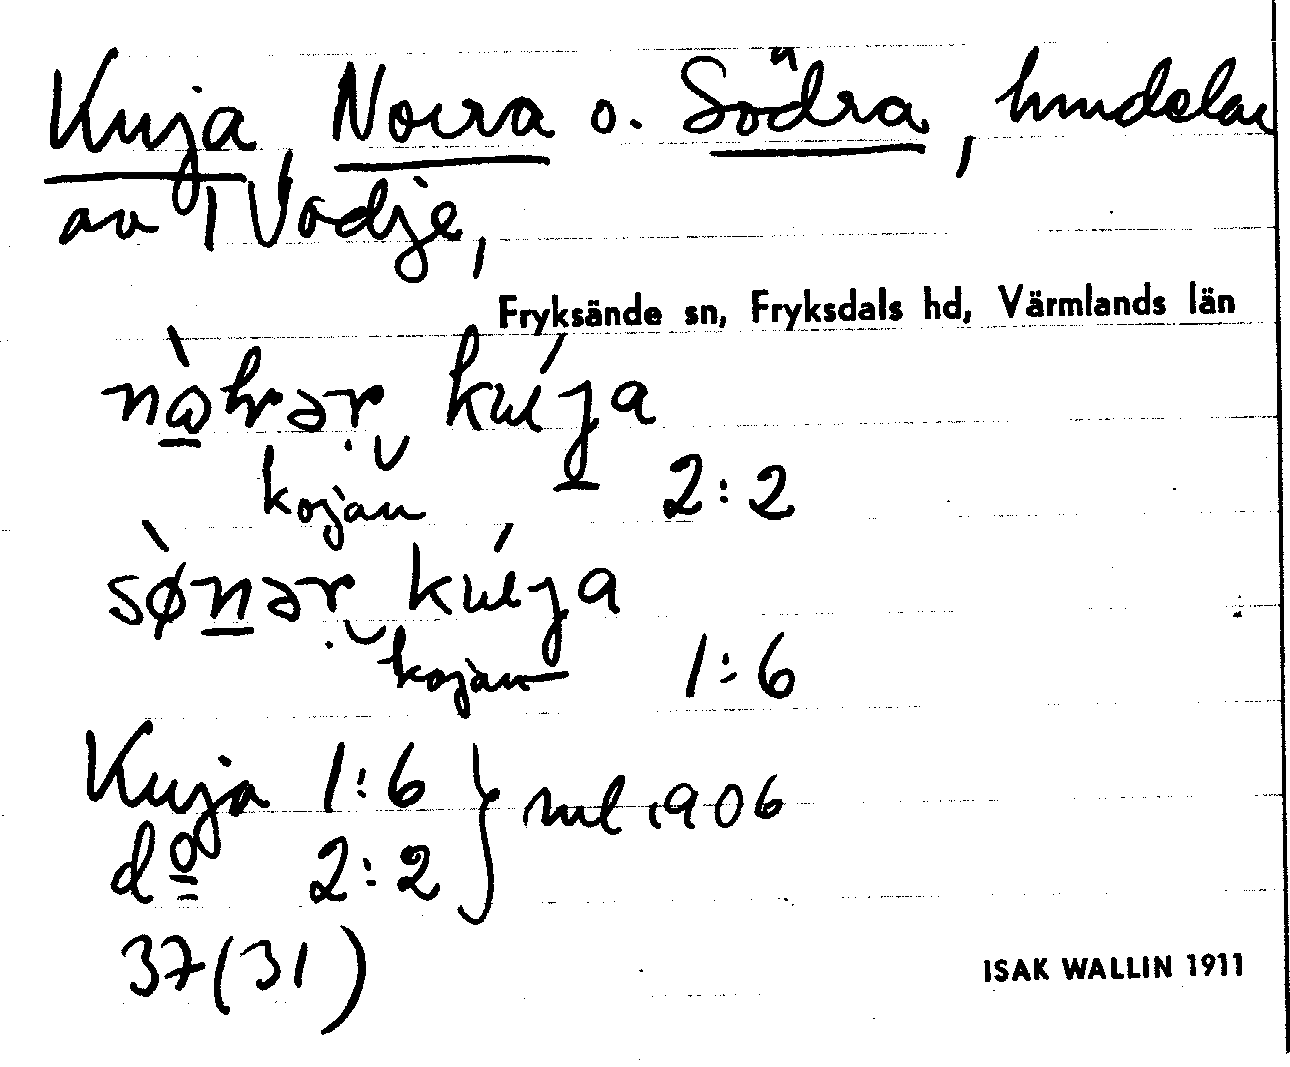 Kuja, Norra o. Södra, hmdelar
av 1 Vadje,
Fryksände sn, Fryksdals hd, Värmlands län
kúȷa
kojan 2:2
kúȷa
kojan 1:6
Kuja 1:6
dº 2:2 } ml 1906
37(31)
ISAK WALLIN 1911